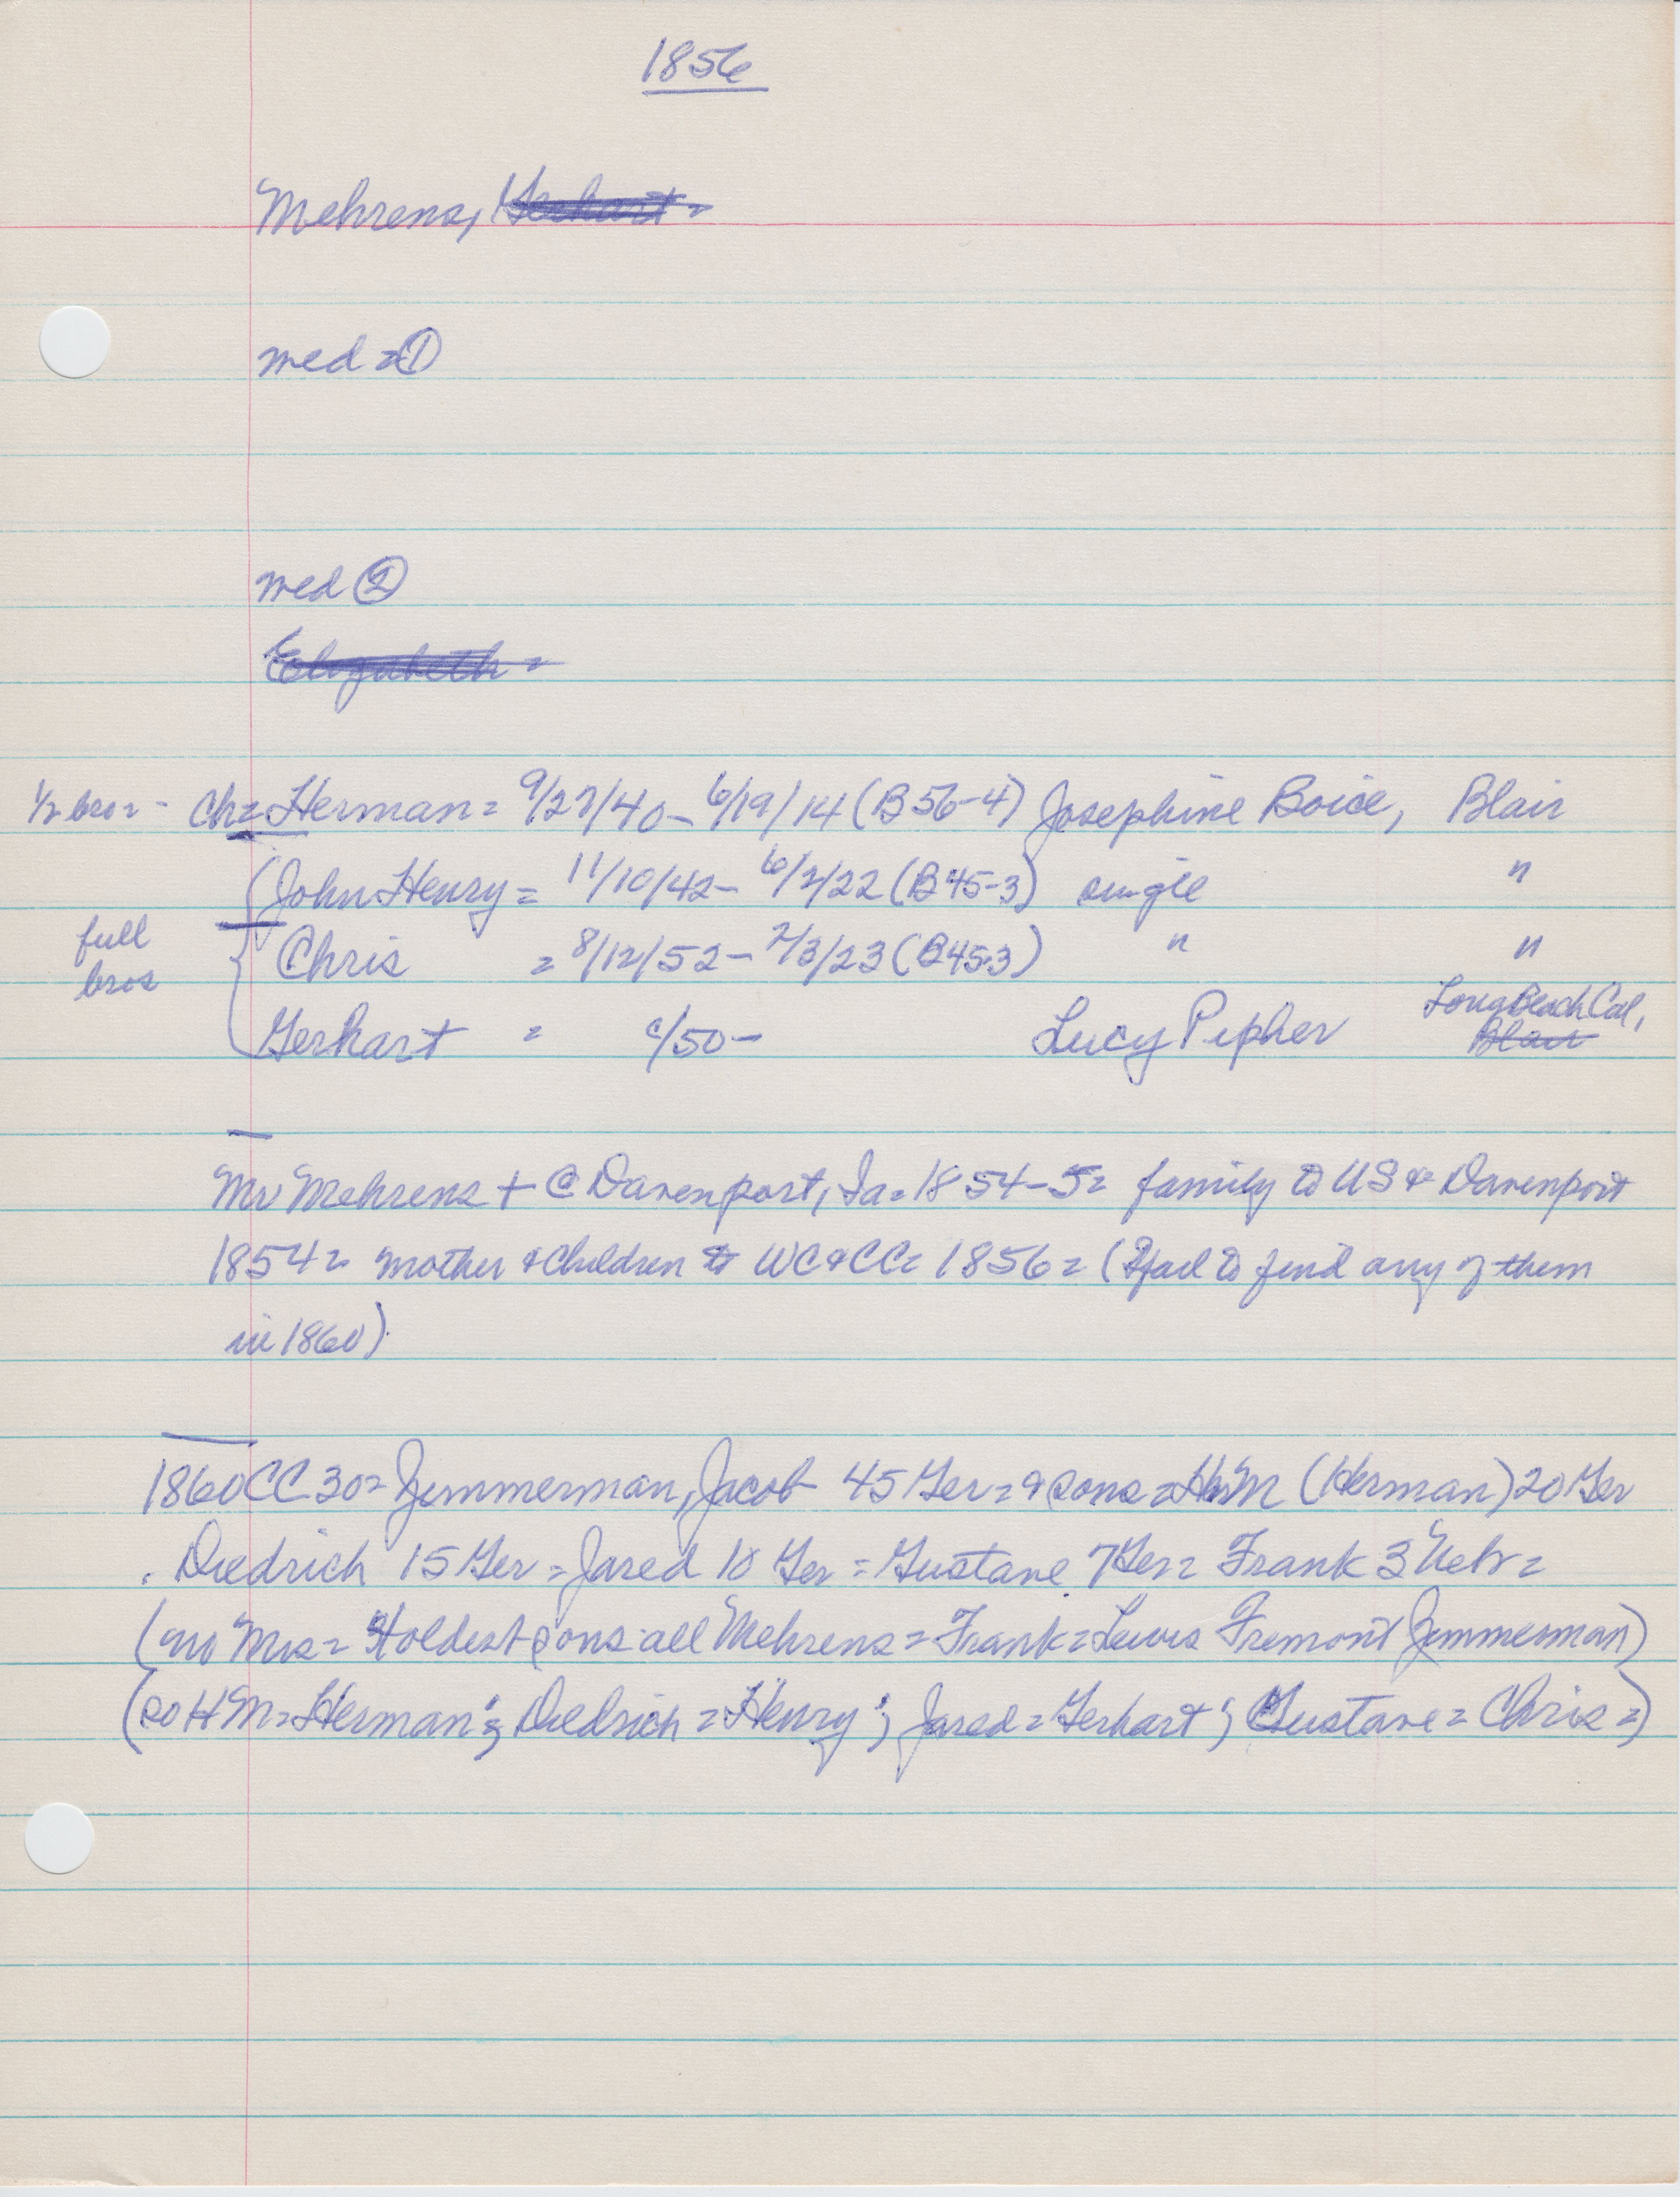 1856
Mehrens, Gerhart =
med = ①
med ②
Elizabeth =
1/2 bro = - Ch = Herman = 9/27/40 - 6/19/14 (B56-4) Josephine Boice, Blair
John Henry = 11/10/42 - 6/2/22 (B45-3) single "
full bros
Chris = 8/12/52 - 2/3/23 (B45-3) " "
Gerhart = c/50 - Lucy Pipher Long Beach Cal, Blair
Mr Mehrens + @ Davenport, Ia = 1854-5 = family to US & Davenport
1854 = mother & children to WC & CC = 1856 = (I fail to find any of them
in 1860)
1860 CC 30 = Zimmerman, Jacob 45 Ger = & sons = HM (Herman) 20 Ger
. Diedrich 15 Ger = Jared 10 Ger = Gustave 7 Ger = Frank 3 Neb =
(no Mrs = 4 oldest sons all Mehrens = Frank = Lewis Fremont Zimmerman)
(so HM = Herman; Diedrich = Henry; Jared = Gerhart; Gustave = Chris =)